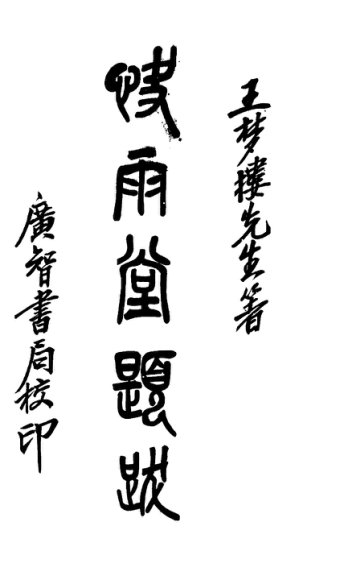 王梦楼先生著
快雨堂題跋
廣智書局校印